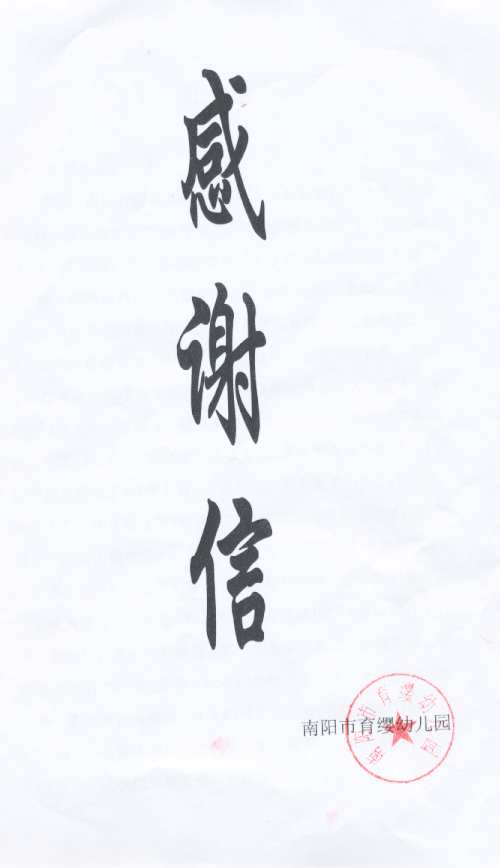 感谢信
南阳市育缨幼儿园
南阳市育缨幼儿园